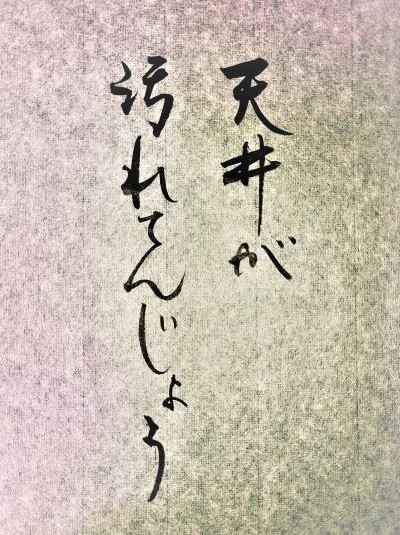 天井が
汚れてんじょう